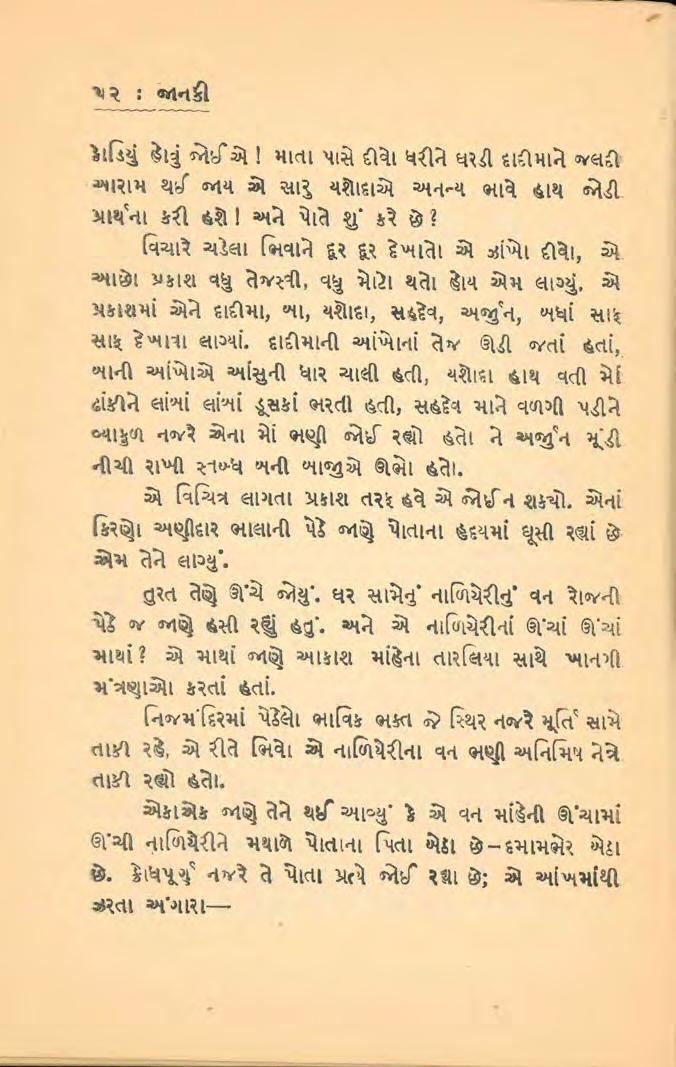 ૫૨ : જાનકી
કોડિયું હોવું જોઈએ! માતા પાસે દીવો ધરીને ઘરડી દાદીમાને જલદી
આરામ થઈ જાય એ સારુ યશોદાએ અનન્ય ભાવે હાથ જોડી
પ્રાર્થના કરી હશે! અને પોતે શું કરે છે?
વિચારે ચડેલા ભિવાને દૂર દૂર દેખાતો એ ઝાંખો દીવો, એ
આછો પ્રકાશ વધુ તેજસ્વી, વધુ મોટો થતો હોય એમ લાગ્યું. એ
પ્રકાશમાં એને દાદીમા, બા, યશોદા, સહદેવ, અર્જુન, બધાં સાફ
સાફ દેખાવા લાગ્યાં. દાદીમાની આંખોનાં તેજ ઊડી જતાં હતાં,
બાની આંખોએ આંસુની ધાર ચાલી હતી, યશોદા હાથ વતી મોં
ઢાંકીને લાંબાં લાંબાં ડૂસકાં ભરતી હતી, સહદેવ માને વળગી પડીને
વ્યાકુળ નજરે એના મોં ભણી જોઈ રહ્યો હતો ને અર્જુન મૂંડી
નીચી રાખી સ્તબ્ધ બની બાજુએ ઊભો હતો.
એ વિચિત્ર લાગતા પ્રકાશ તરફ હવે એ જોઈ ન શકયો. એનાં
કિરણો અણીદાર ભાલાની પેઠે જાણે પોતાના હૃદયમાં ઘૂસી રહ્યાં છે
એમ તેને લાગ્યું.
તુરત તેણે ઊંચે જોયું. ઘર સામેનું નાળિયેરીનું વન રોજની
પેઠે જ જાણે હસી રહ્યું હતું. અને એ નાળિયેરીનાં ઊંચાં ઊંચાં
માથાં? એ માથાં જાણે આકાશ માંહેના તારલિયા સાથે ખાનગી
મંત્રણાઓ કરતાં હતાં.
નિજમંદિરમાં પેઠેલો ભાવિક ભક્ત જે સ્થિર નજરે મૂર્તિ સામે
તાકી રહે, એ રીતે ભિવો એ નાળિયેરીના વન ભણી અનિમિષ નેત્રે
તાકી રહ્યો હતો.
એકાએક જાણે તેને થઈ આવ્યું કે એ વન માંહેની ઊંચામાં
ઊંચી નાળિયેરીને મથાળે પોતાના પિતા બેઠા છે–દમામભેર બેઠા
છે. ક્રોધપૂર્ણ નજરે તે પોતા પ્રત્યે જોઈ રહ્યા છે; એ આંખમાંથી
ઝરતા અંગારા—